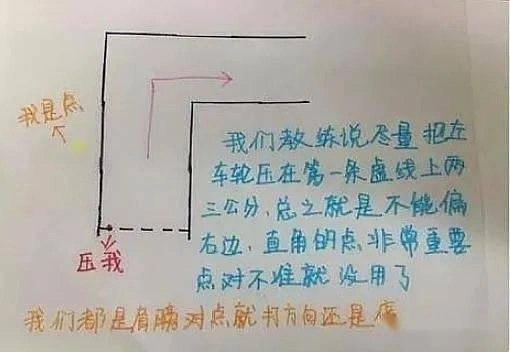 我是点
我们教练说尽量把左
车轮压在第一条虚线上两
三公分，总之就是不能偏
右边，直角的点非常重要
点对不准就没用了
压我
我们都是肩膀对点就打方向还是